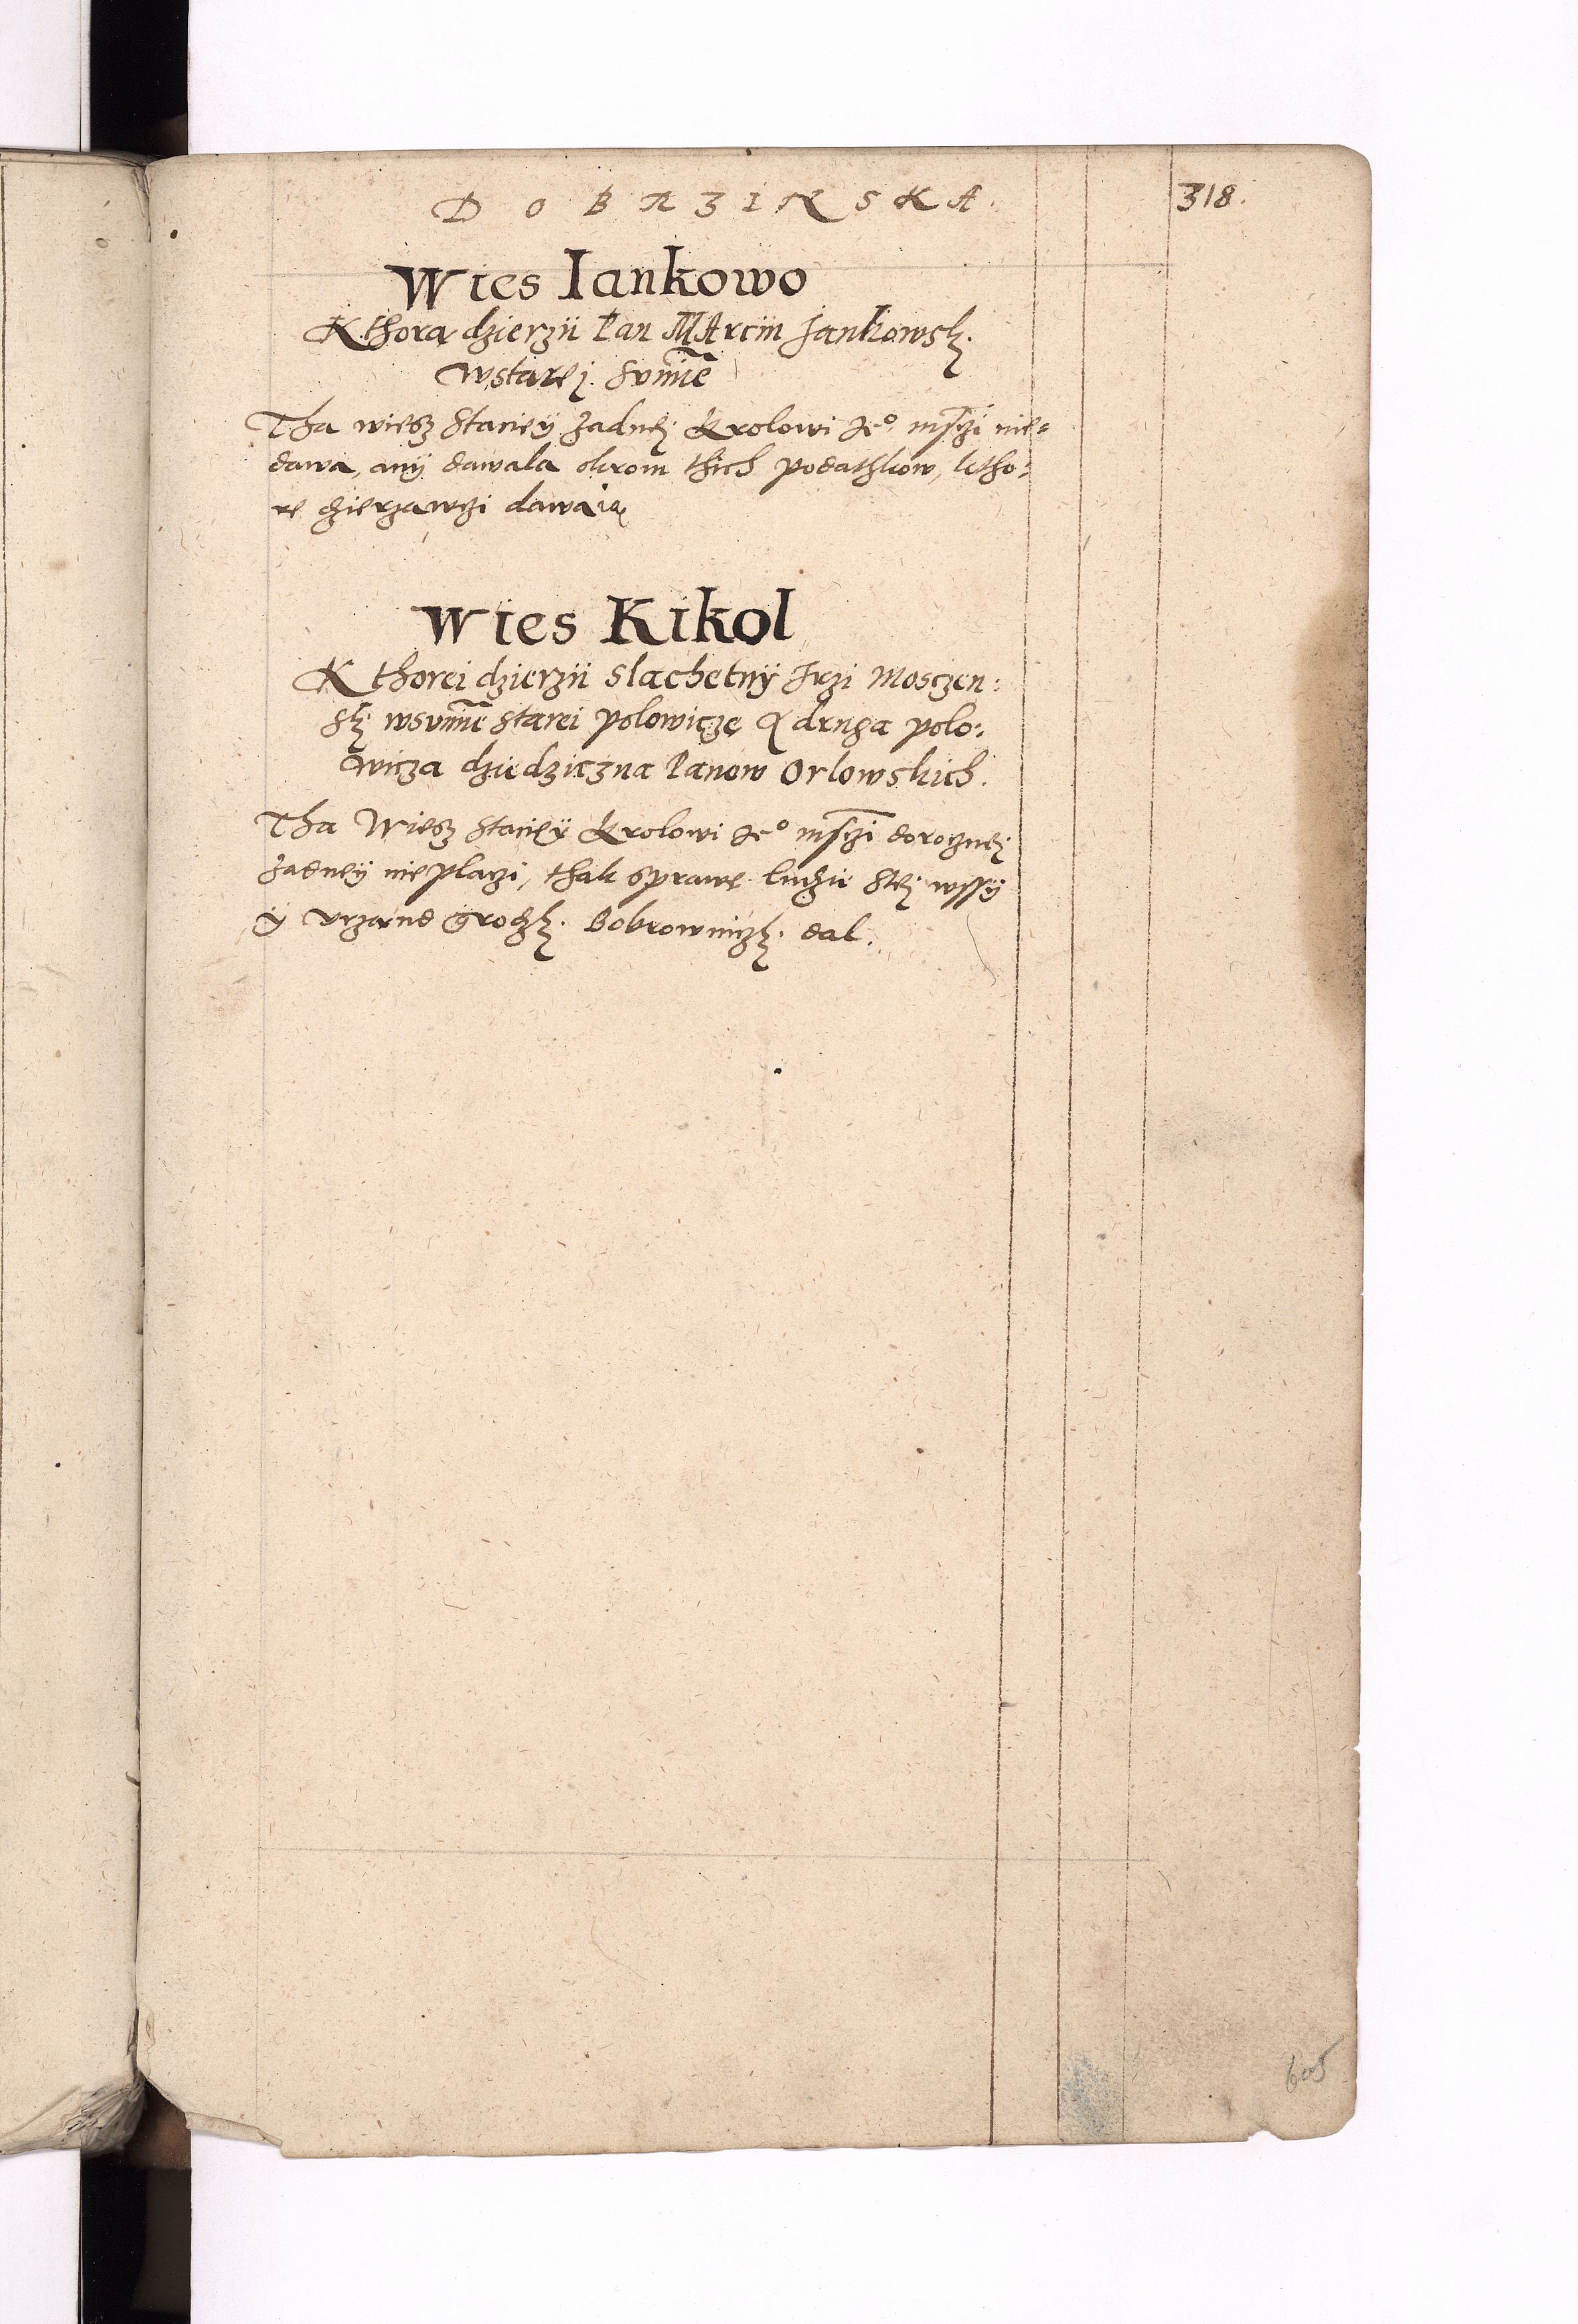 DOBRZINSKA. 318.
Wies Iankowo
Kthorą dzierzÿ Pan MArcin Jankowsk.
wstarej. Summe
Tha wiesz staciey zadnej Krolowi Jeº msczi nie-
dawa, anÿ dawala okrom thich podathkow, ktho-
re dzierzawczi dawaią
Wies Kikol
Kthorei dzierzÿ slachetnÿ Jrzi Mosczen:
sk: wsumie starei polowicze & druga polo:
wicza dziedziczna Panow Orlowskich.
Tha Wiesz staciey Krolowi Jeº msczi dorocznej
zadney nie placzi, thak sprawę ludzie stej wssÿ
ÿ vrzand grodzk. Bobrowniczk. dal.
605